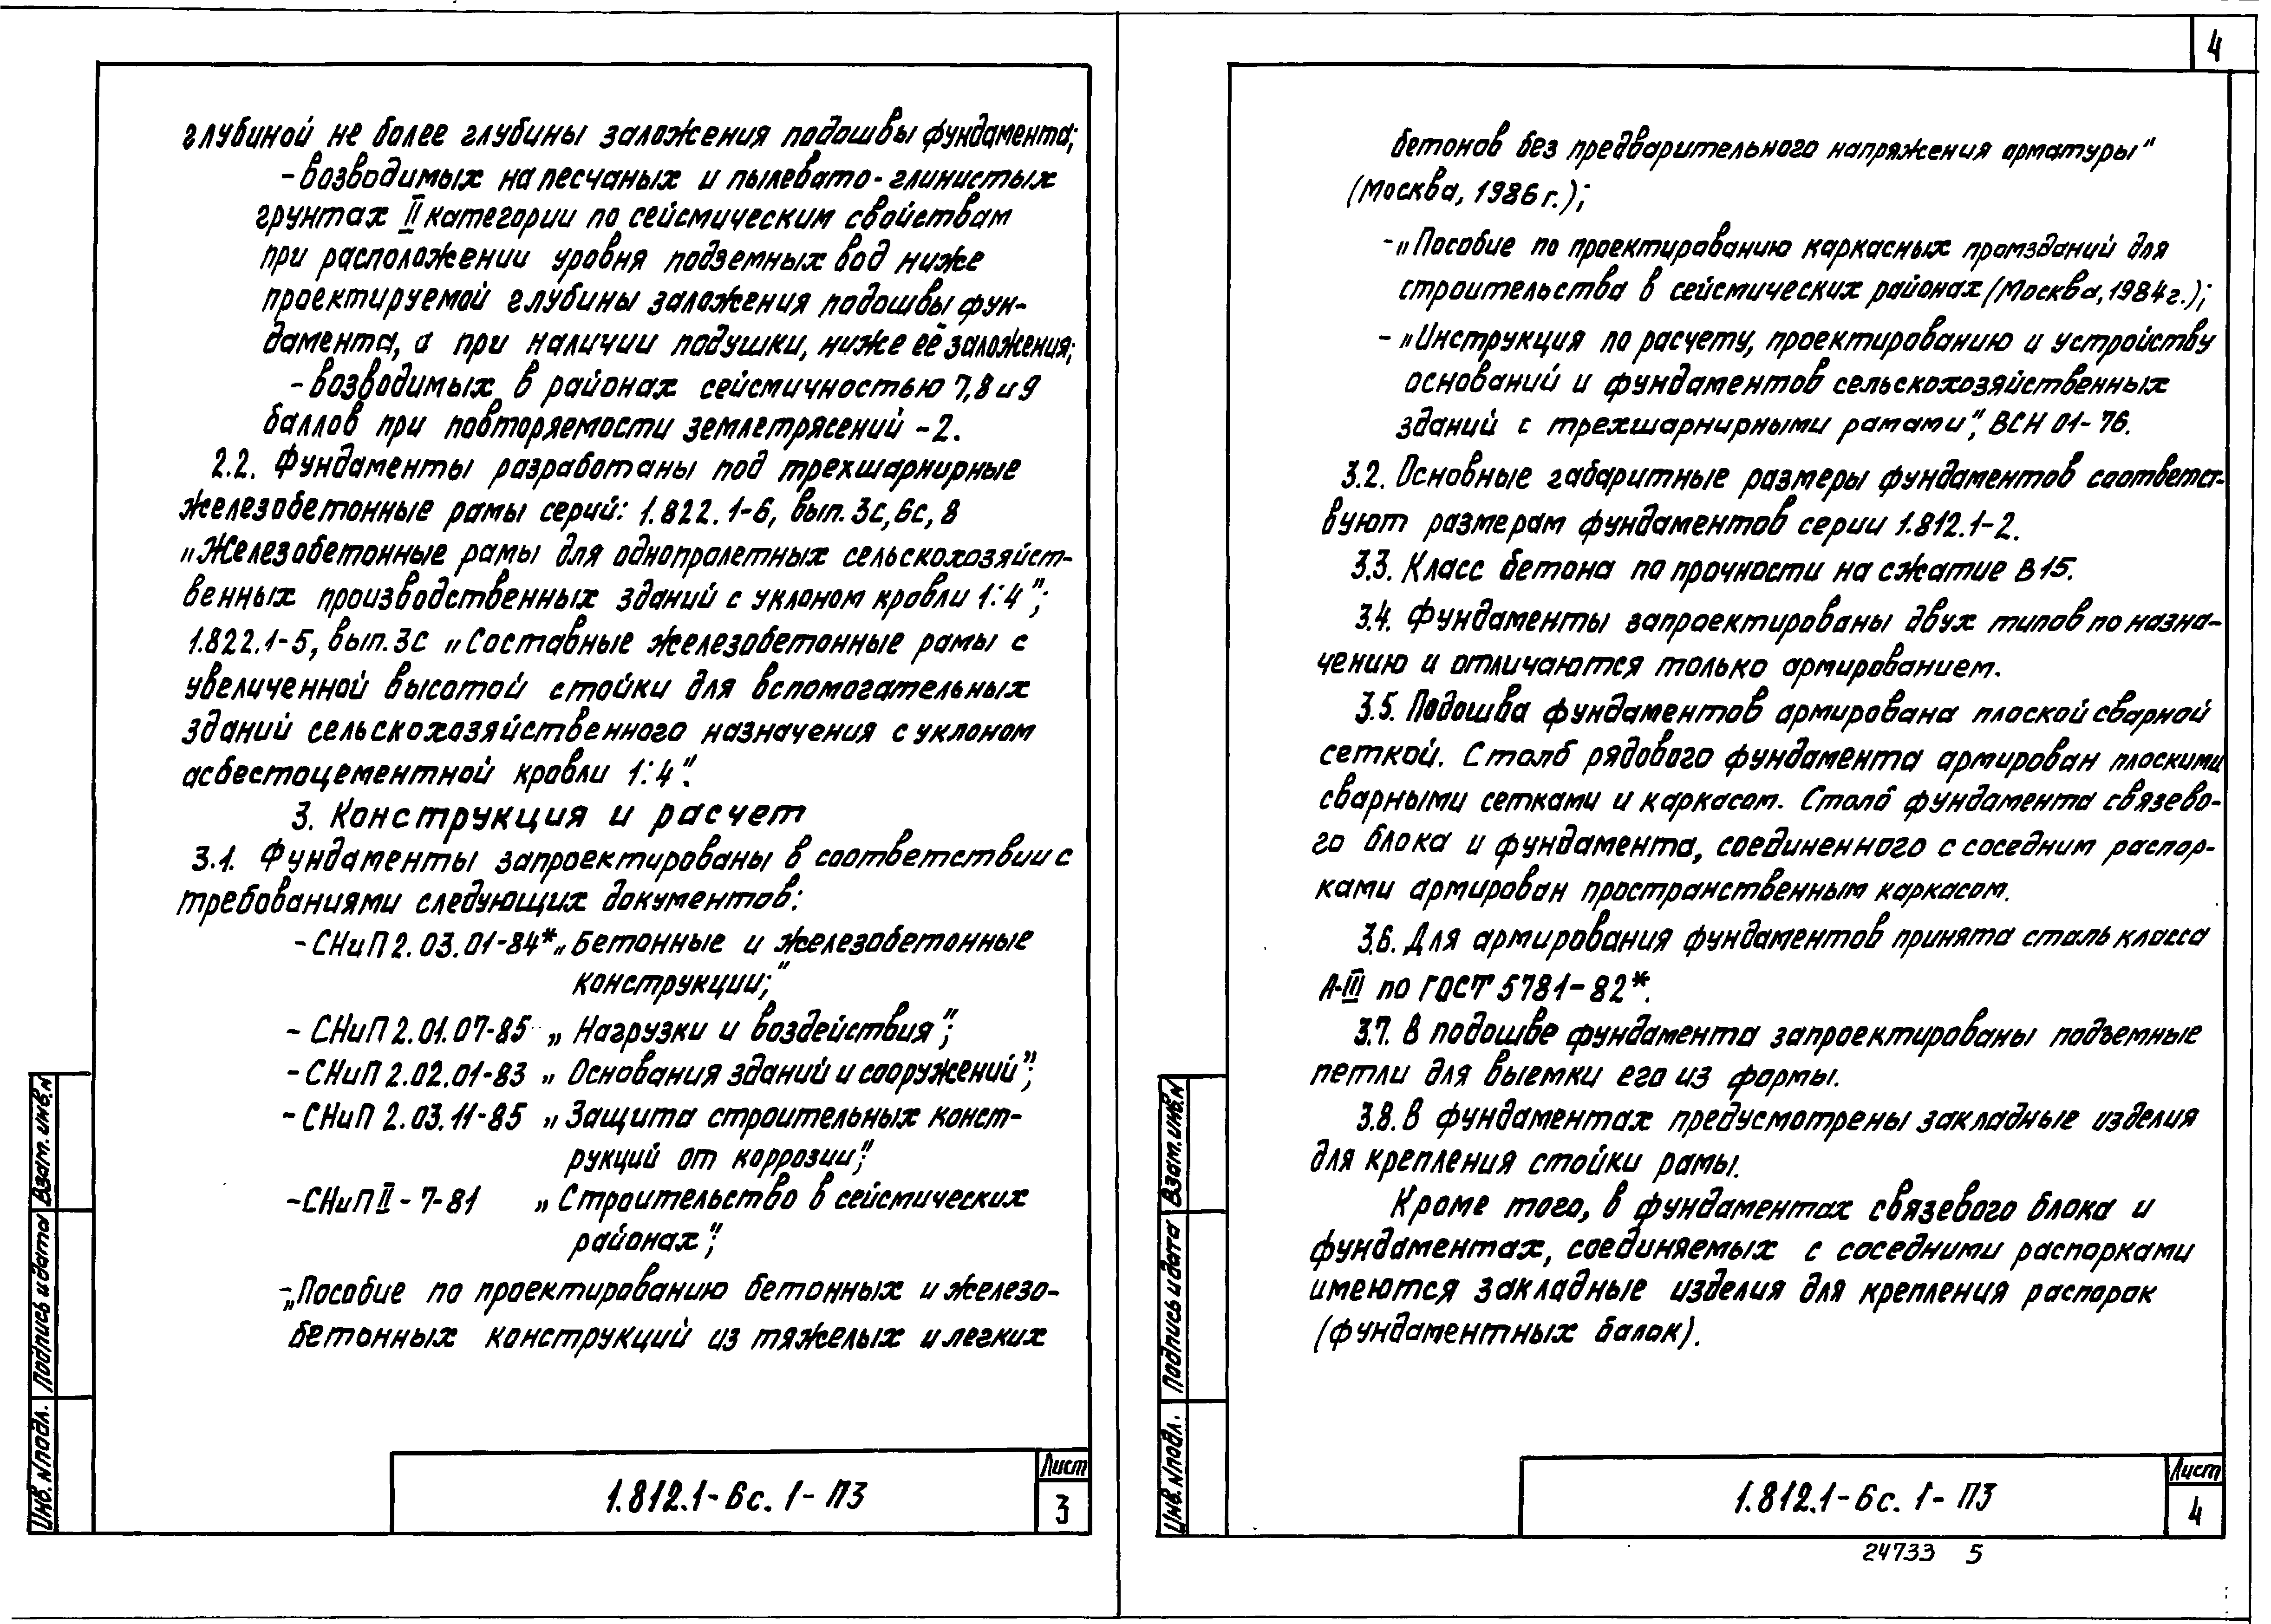 глубиной не более глубины заложения подошвы фундамента;
- возводимых на песчаных и пылевато-глинистых
грунтах II категории по сейсмическим свойствам
при расположении уровня подземных вод ниже
проектируемой глубины заложения подошвы фун-
дамента, а при наличии подушки, ниже её заложения;
- возводимых в районах сейсмичностью 7,8 и 9
баллов при повторяемости землетрясений - 2.
2.2. Фундаменты разработаны под трехшарнирные
железобетонные рамы серий: 1.822.1-6, вып. 3с, 6с, 8
„Железобетонные рамы для однопролетных сельскохозяйст-
венных производственных зданий с уклоном кровли 1:4";
1.822.1-5, вып. 3с „Составные железобетонные рамы с
увеличенной высотой стойки для вспомогательных
зданий сельскохозяйственного назначения с уклоном
асбестоцементной кровли 1:4".
3. Конструкция и расчет
3.1. Фундаменты запроектированы в соответствии с
требованиями следующих документов:
- СНиП 2.03.01-84* „Бетонные и железобетонные
конструкции;"
- СНиП 2.01.07-85 „Нагрузки и воздействия";
- СНиП 2.02.01-83 „Основания зданий и сооружений";
- СНиП 2.03.11-85 „Защита строительных конст-
рукций от коррозии";
- СНиП II-7-81 „Строительство в сейсмических
районах";
- „Пособие по проектированию бетонных и железо-
бетонных конструкций из тяжелых и легких
Инв. N подл. Подпись и дата Взам. инв. N
1.812.1-6с. 1-ПЗ
Лист
3
4
бетонов без предварительного напряжения арматуры"
(Москва, 1986 г.);
- „Пособие по проектированию каркасных промзданий для
строительства в сейсмических районах (Москва, 1984 г.);
- „Инструкция по расчету, проектированию и устройству
оснований и фундаментов сельскохозяйственных
зданий с трехшарнирными рамами", ВСН 01-76.
3.2. Основные габаритные размеры фундаментов соответст-
вуют размерам фундаментов серии 1.812.1-2.
3.3. Класс бетона по прочности на сжатие В15.
3.4. Фундаменты запроектированы двух типов по назна-
чению и отличаются только армированием.
3.5. Подошва фундаментов армирована плоской сварной
сеткой. Столб рядового фундамента армирован плоскими
сварными сетками и каркасом. Столб фундамента связево-
го блока и фундамента, соединенного с соседним распор-
ками армирован пространственным каркасом.
3.6. Для армирования фундаментов принята сталь класса
А-III по ГОСТ 5781-82*.
3.7. В подошве фундамента запроектированы подъемные
петли для выемки его из формы.
3.8. В фундаментах предусмотрены закладные изделия
для крепления стойки рамы.
Кроме того, в фундаментах связевого блока и
фундаментах, соединяемых с соседними распорками
имеются закладные изделия для крепления распорок
(фундаментных балок).
Инв. N подл. Подпись и дата Взам. инв. N
1.812.1-6с. 1-ПЗ
Лист
4
24733 5